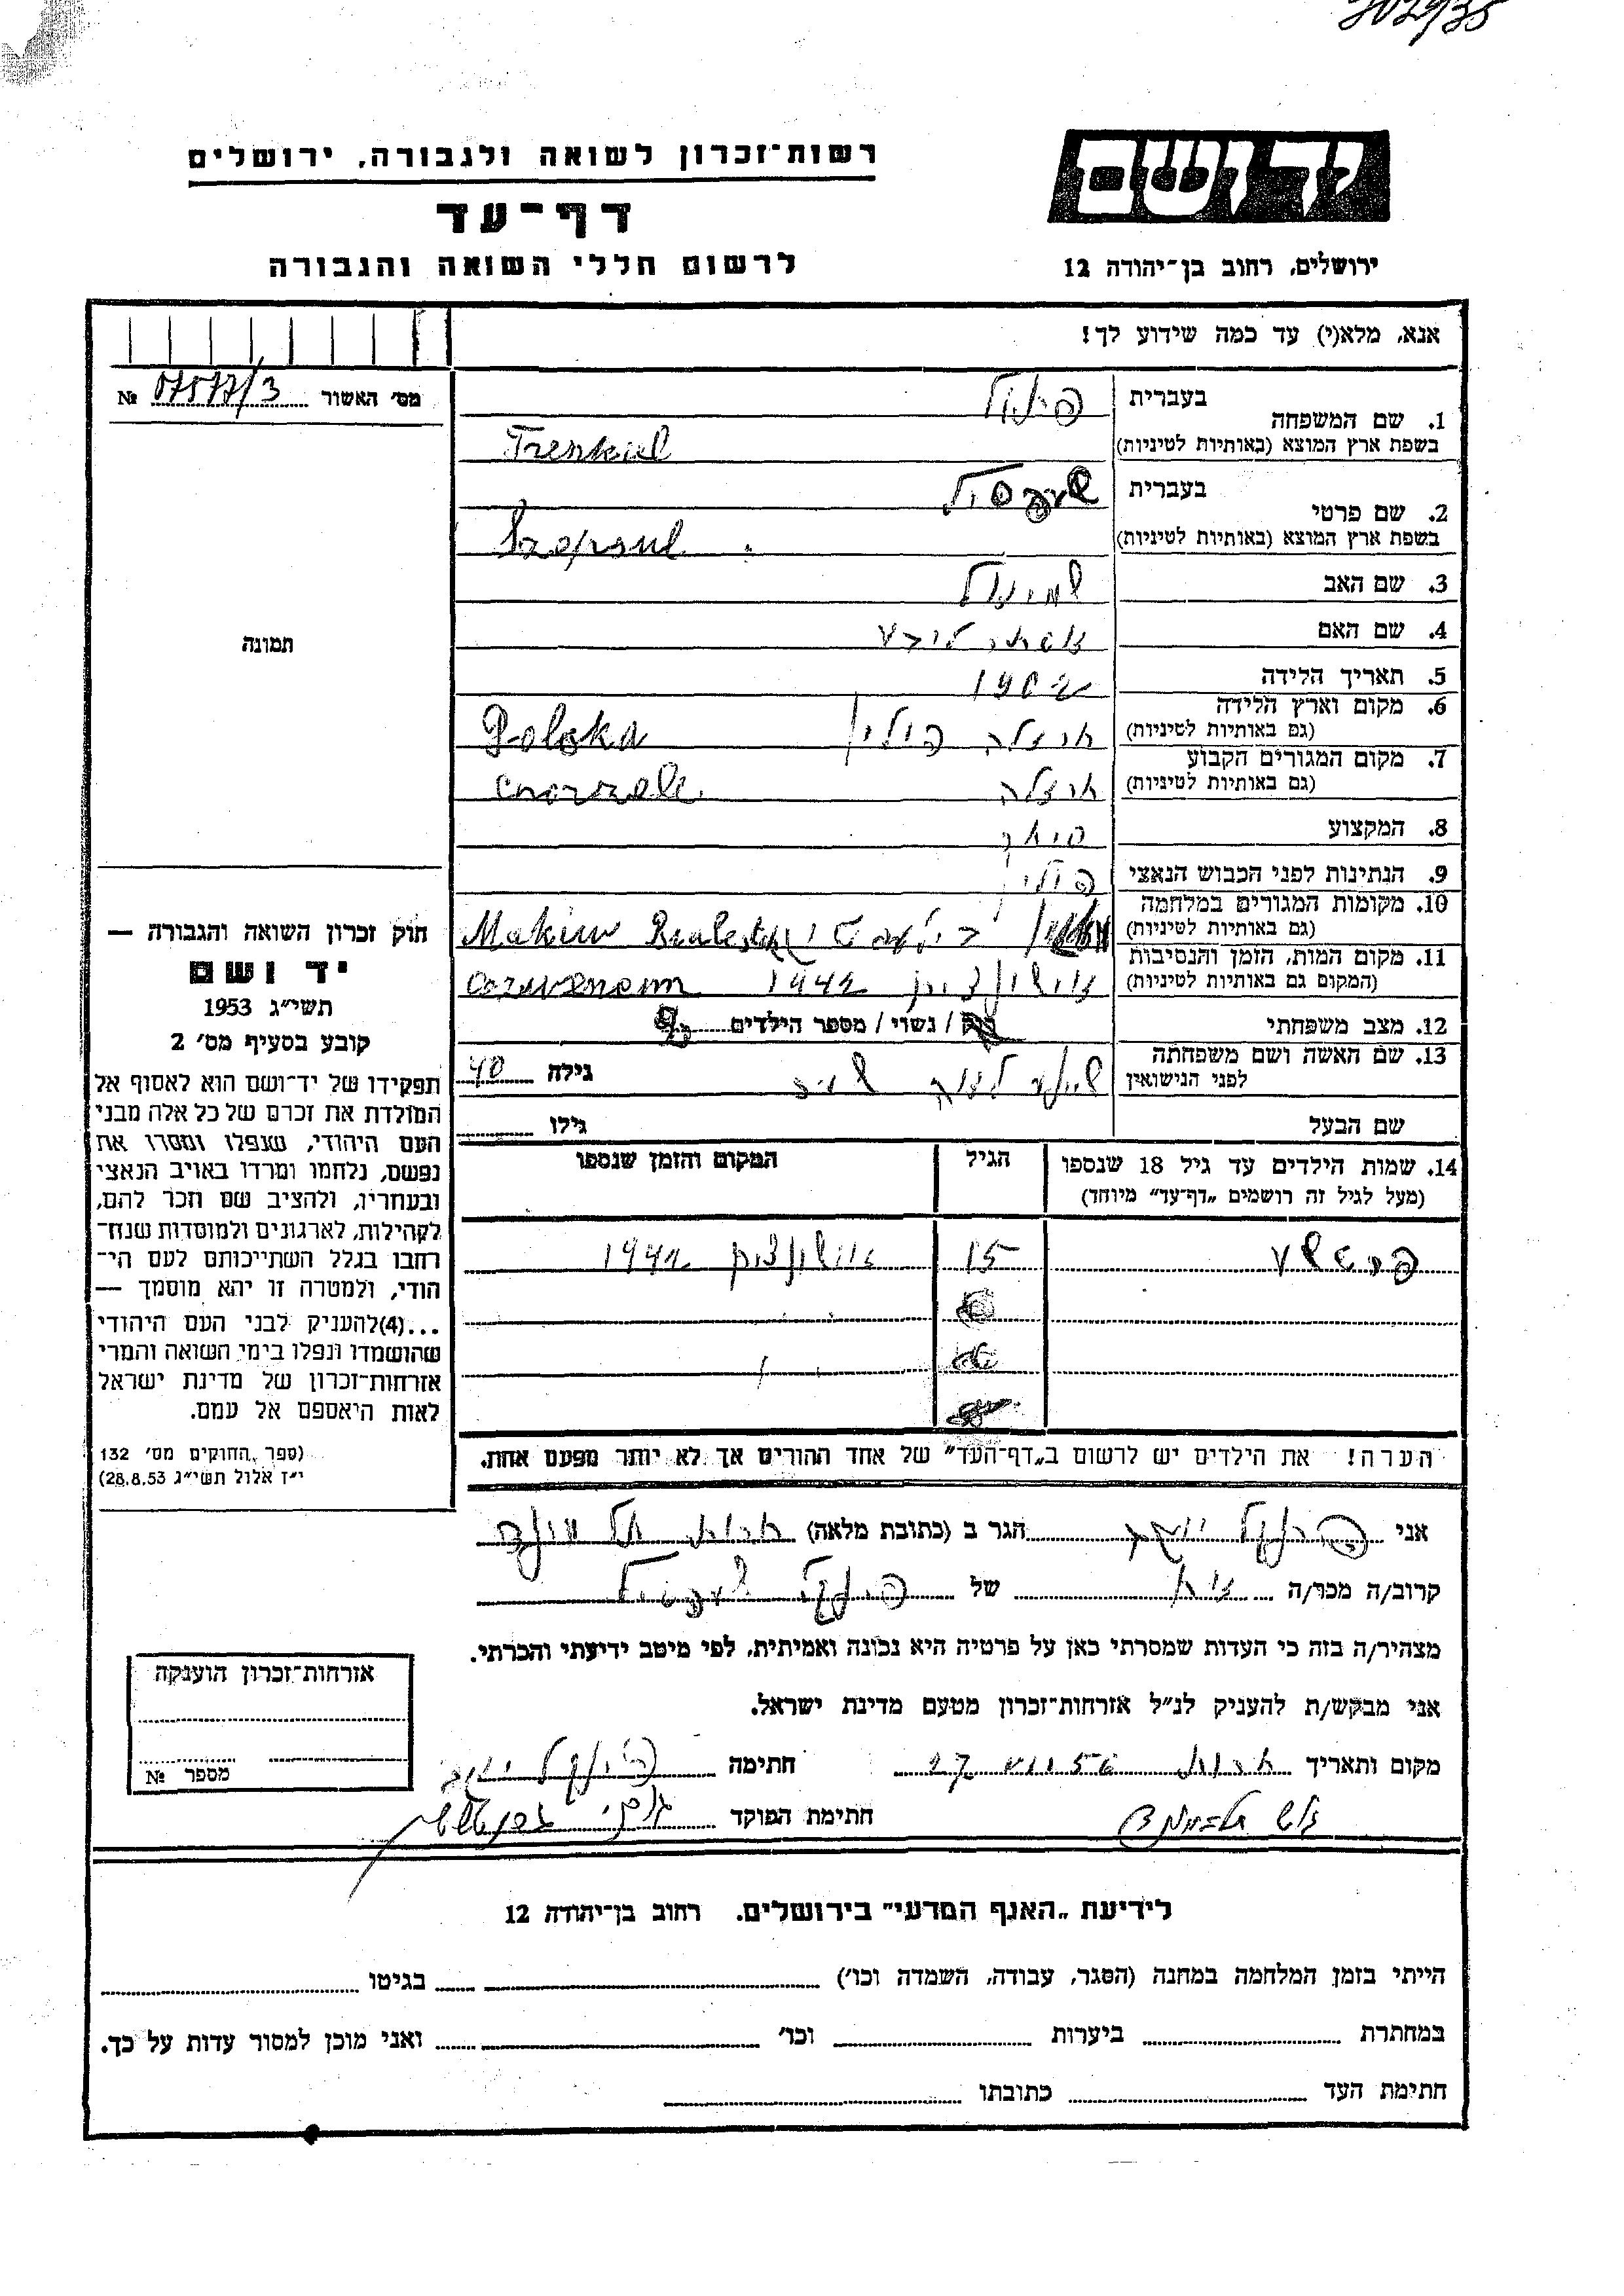 202/35
רשות־זכרון לשואה ולגבורה, ירושלים
דף־עד
לרשום חללי השואה והגבורה
יד ושם
ירושלים, רחוב בן־יהודה 12
אנא, מלא(י) עד כמה שידוע לך!
מס׳ האשור № 07577/3
1. שם המשפחה
בעברית
בשפת ארץ המוצא (באותיות לטיניות) Frenkiel
2. שם פרטי
בעברית
בשפת ארץ המוצא (באותיות לטיניות) Szepsul
3. שם האב
4. שם האם
5. תאריך הלידה 1902
6. מקום וארץ הלידה
(גם באותיות לטיניות) פולין Polska
7. מקום המגורים הקבוע
(גם באותיות לטיניות)
8. המקצוע
9. הנתינות לפני הכבוש הנאצי פולין
10. מקומות המגורים במלחמה
(גם באותיות לטיניות) Makuw
11. מקום המות, הזמן והנסיבות
(המקום גם באותיות לטיניות) אושוינצים 1942
12. מצב משפחתי רוק / נשוי / מספר הילדים
13. שם האשה ושם משפחתה
לפני הנישואין
גילה 40
שם הבעל
גילו
14. שמות הילדים עד גיל 18 שנספו
(מעל לגיל זה רושמים „דף־עד״ מיוחד)
הגיל
המקום והזמן שנספו
15 אושוינצים 1942
הערה! את הילדים יש לרשום ב„דף־העד״ של אחד ההורים אך לא יותר מפעם אחת.
תמונה
חוק זכרון השואה והגבורה —
יד ושם
תשי״ג 1953
קובע בסעיף מס׳ 2
תפקידו של יד־ושם הוא לאסוף אל
המולדת את זכרם של כל אלה מבני
העם היהודי, שנפלו ומסרו את
נפשם, נלחמו ומרדו באויב הנאצי
ובעוזריו, ולהציב שם וזכר להם,
לקהילות, לארגונים ולמוסדות שנח־
רבו בגלל השתייכותם לעם הי־
הודי, ולמטרה זו יהא מוסמך —
...(4)להעניק לבני העם היהודי
שהושמדו ונפלו בימי השואה והמרי
אזרחות־זכרון של מדינת ישראל
לאות היאספם אל עמם.
(ספר החוקים מס׳ 132
י״ז אלול תשי״ג 28.8.53)
אני פרנקל יוסף הגר ב (כתובת מלאה)
קרוב/ה מכר/ה אח של פרנקל
מצהיר/ה בזה כי העדות שמסרתי כאן על פרטיה היא נכונה ואמיתית, לפי מיטב ידיעתי והכרתי.
אני מבקש/ת להעניק לנ״ל אזרחות־זכרון מטעם מדינת ישראל.
מקום ותאריך חתימה פרנקל יוסף
חתימת הפוקד
אזרחות־זכרון הוענקה
מספר №
לידיעת „האגף המדעי״ בירושלים. רחוב בן־יהודה 12
הייתי בזמן המלחמה במחנה (הסגר, עבודה, השמדה וכו׳) בגיטו
במחתרת ביערות וכו׳ ואני מוכן למסור עדות על כך.
חתימת העד כתובתו